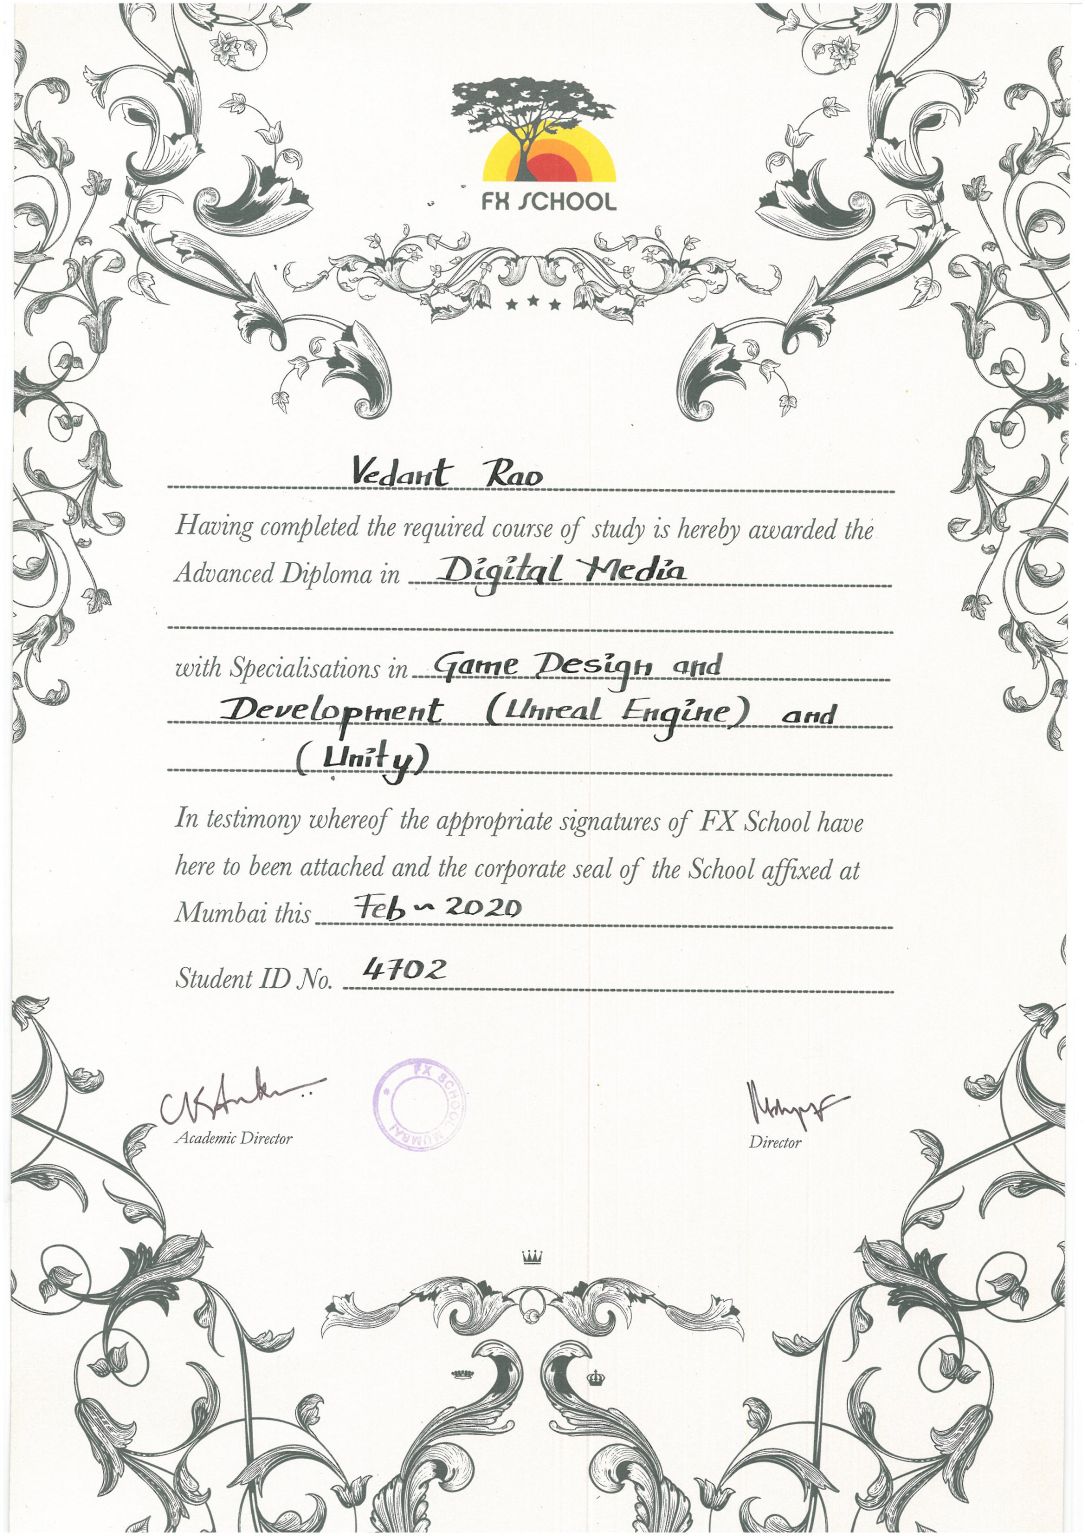 FX SCHOOL
Vedant Rao
Having completed the required course of study is hereby awarded the
Advanced Diploma in Digital Media
with Specialisations in Game Design and
Development (Unreal Engine) and
(Unity)
In testimony whereof the appropriate signatures of FX School have
here to been attached and the corporate seal of the School affixed at
Mumbai this Feb ~ 2020
Student ID No. 4702
FX SCHOOL MUMBAI
Academic Director
Director